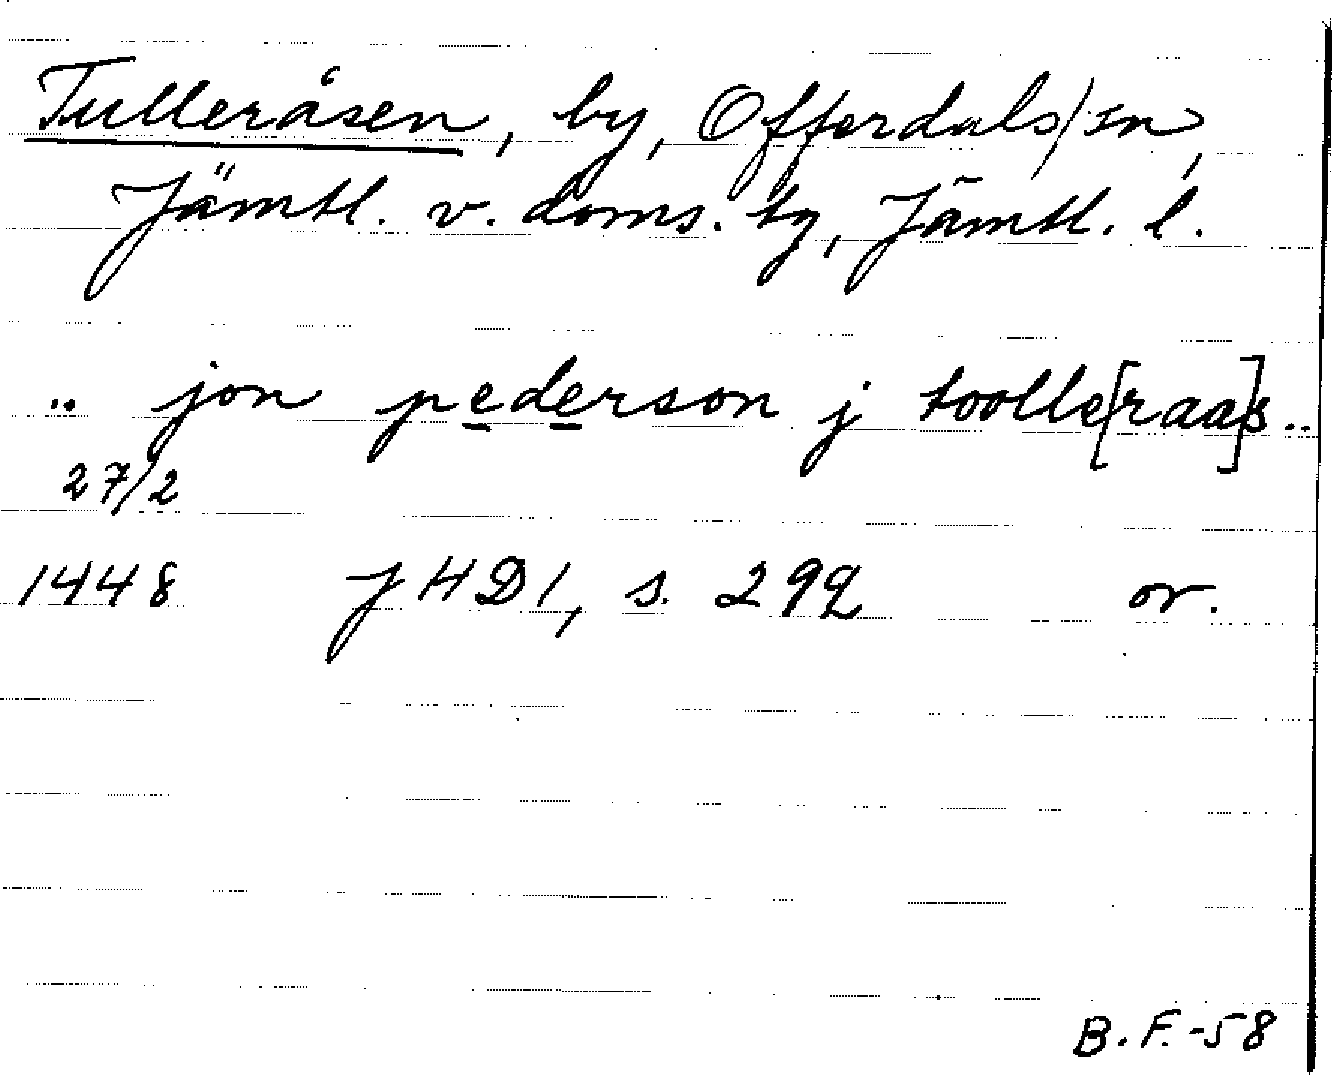 Tulleråsen, by, Offerdals sn,
Jämtl. v. doms. tg, Jämtl. l.
.. jon pederson j toolle[raa]s ..
27/2
1448 JHD 1, s. 292 or.
B.F.-58